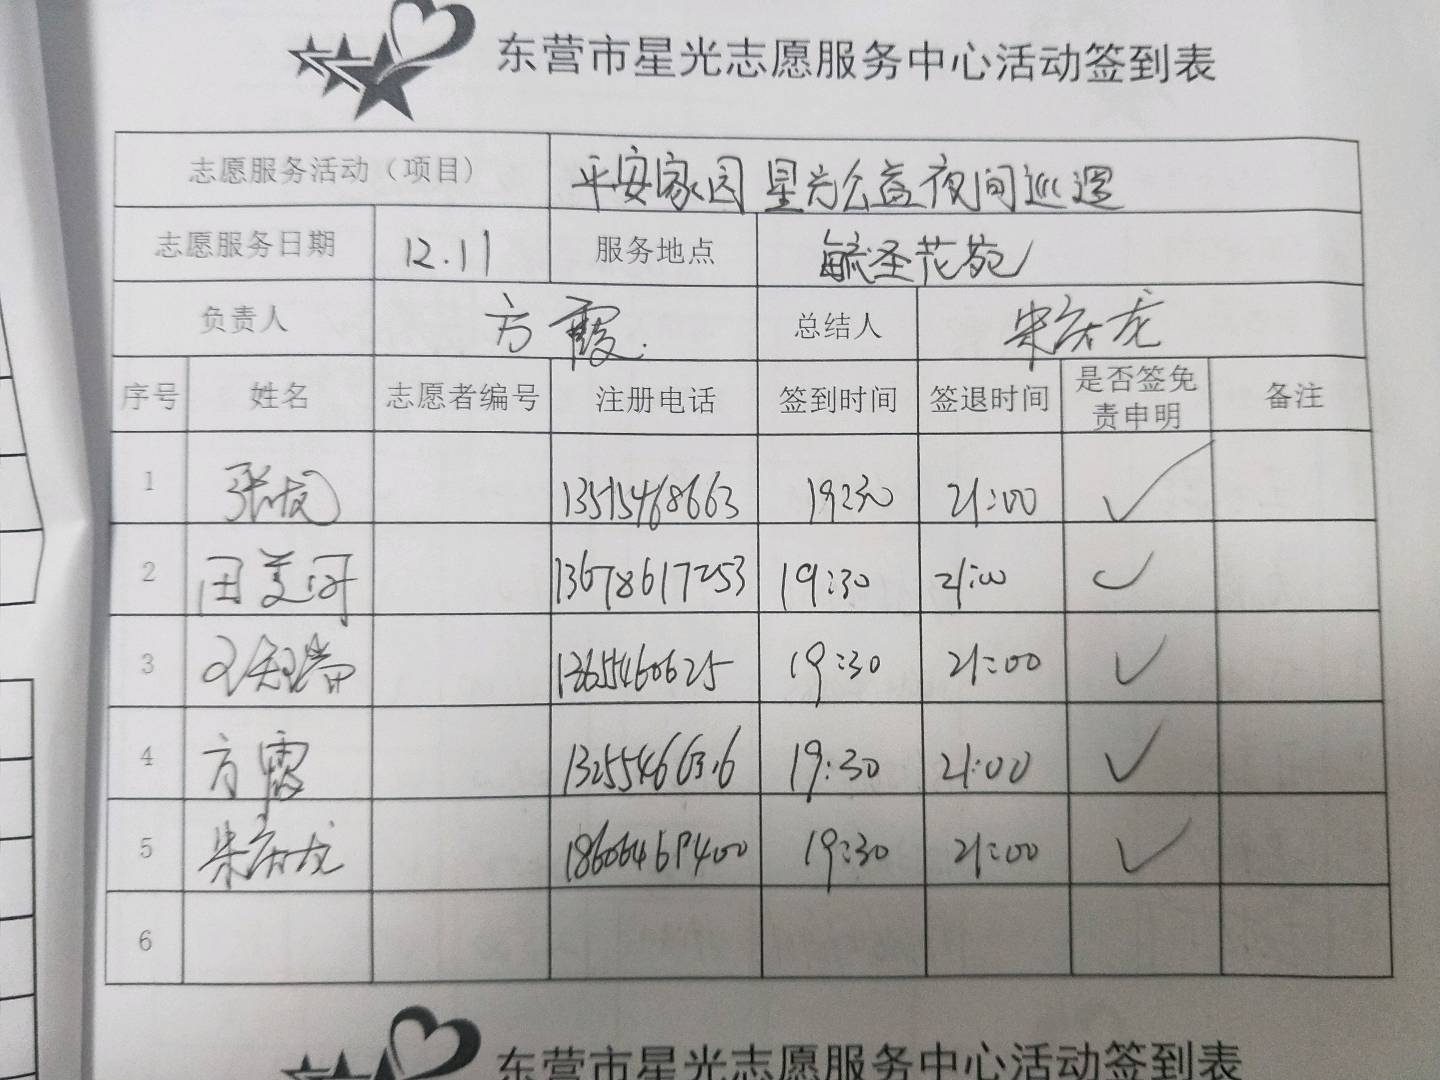 东营市星光志愿服务中心活动签到表
志愿服务活动（项目） 平安家园 星光公益夜间巡逻
志愿服务日期 12.11 服务地点 毓圣花苑
负责人 方霞 总结人 宋庆龙
序号 姓名 志愿者编号 注册电话 签到时间 签退时间 是否签免责申明 备注
1 张波 13515468663 19:30 21:00 ✓
2 田美河 13678617253 19:30 21:00 ✓
3 13655460625 19:30 21:00 ✓
4 方霞 19:30 21:00 ✓
5 宋庆龙 19:30 21:00 ✓
6
东营市星光志愿服务中心活动签到表